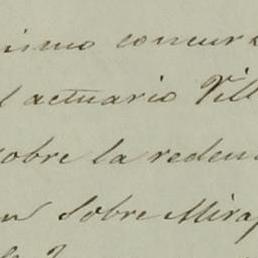 nismo concurs
l actuario Vill
sobre la reden
en sobre Miraf